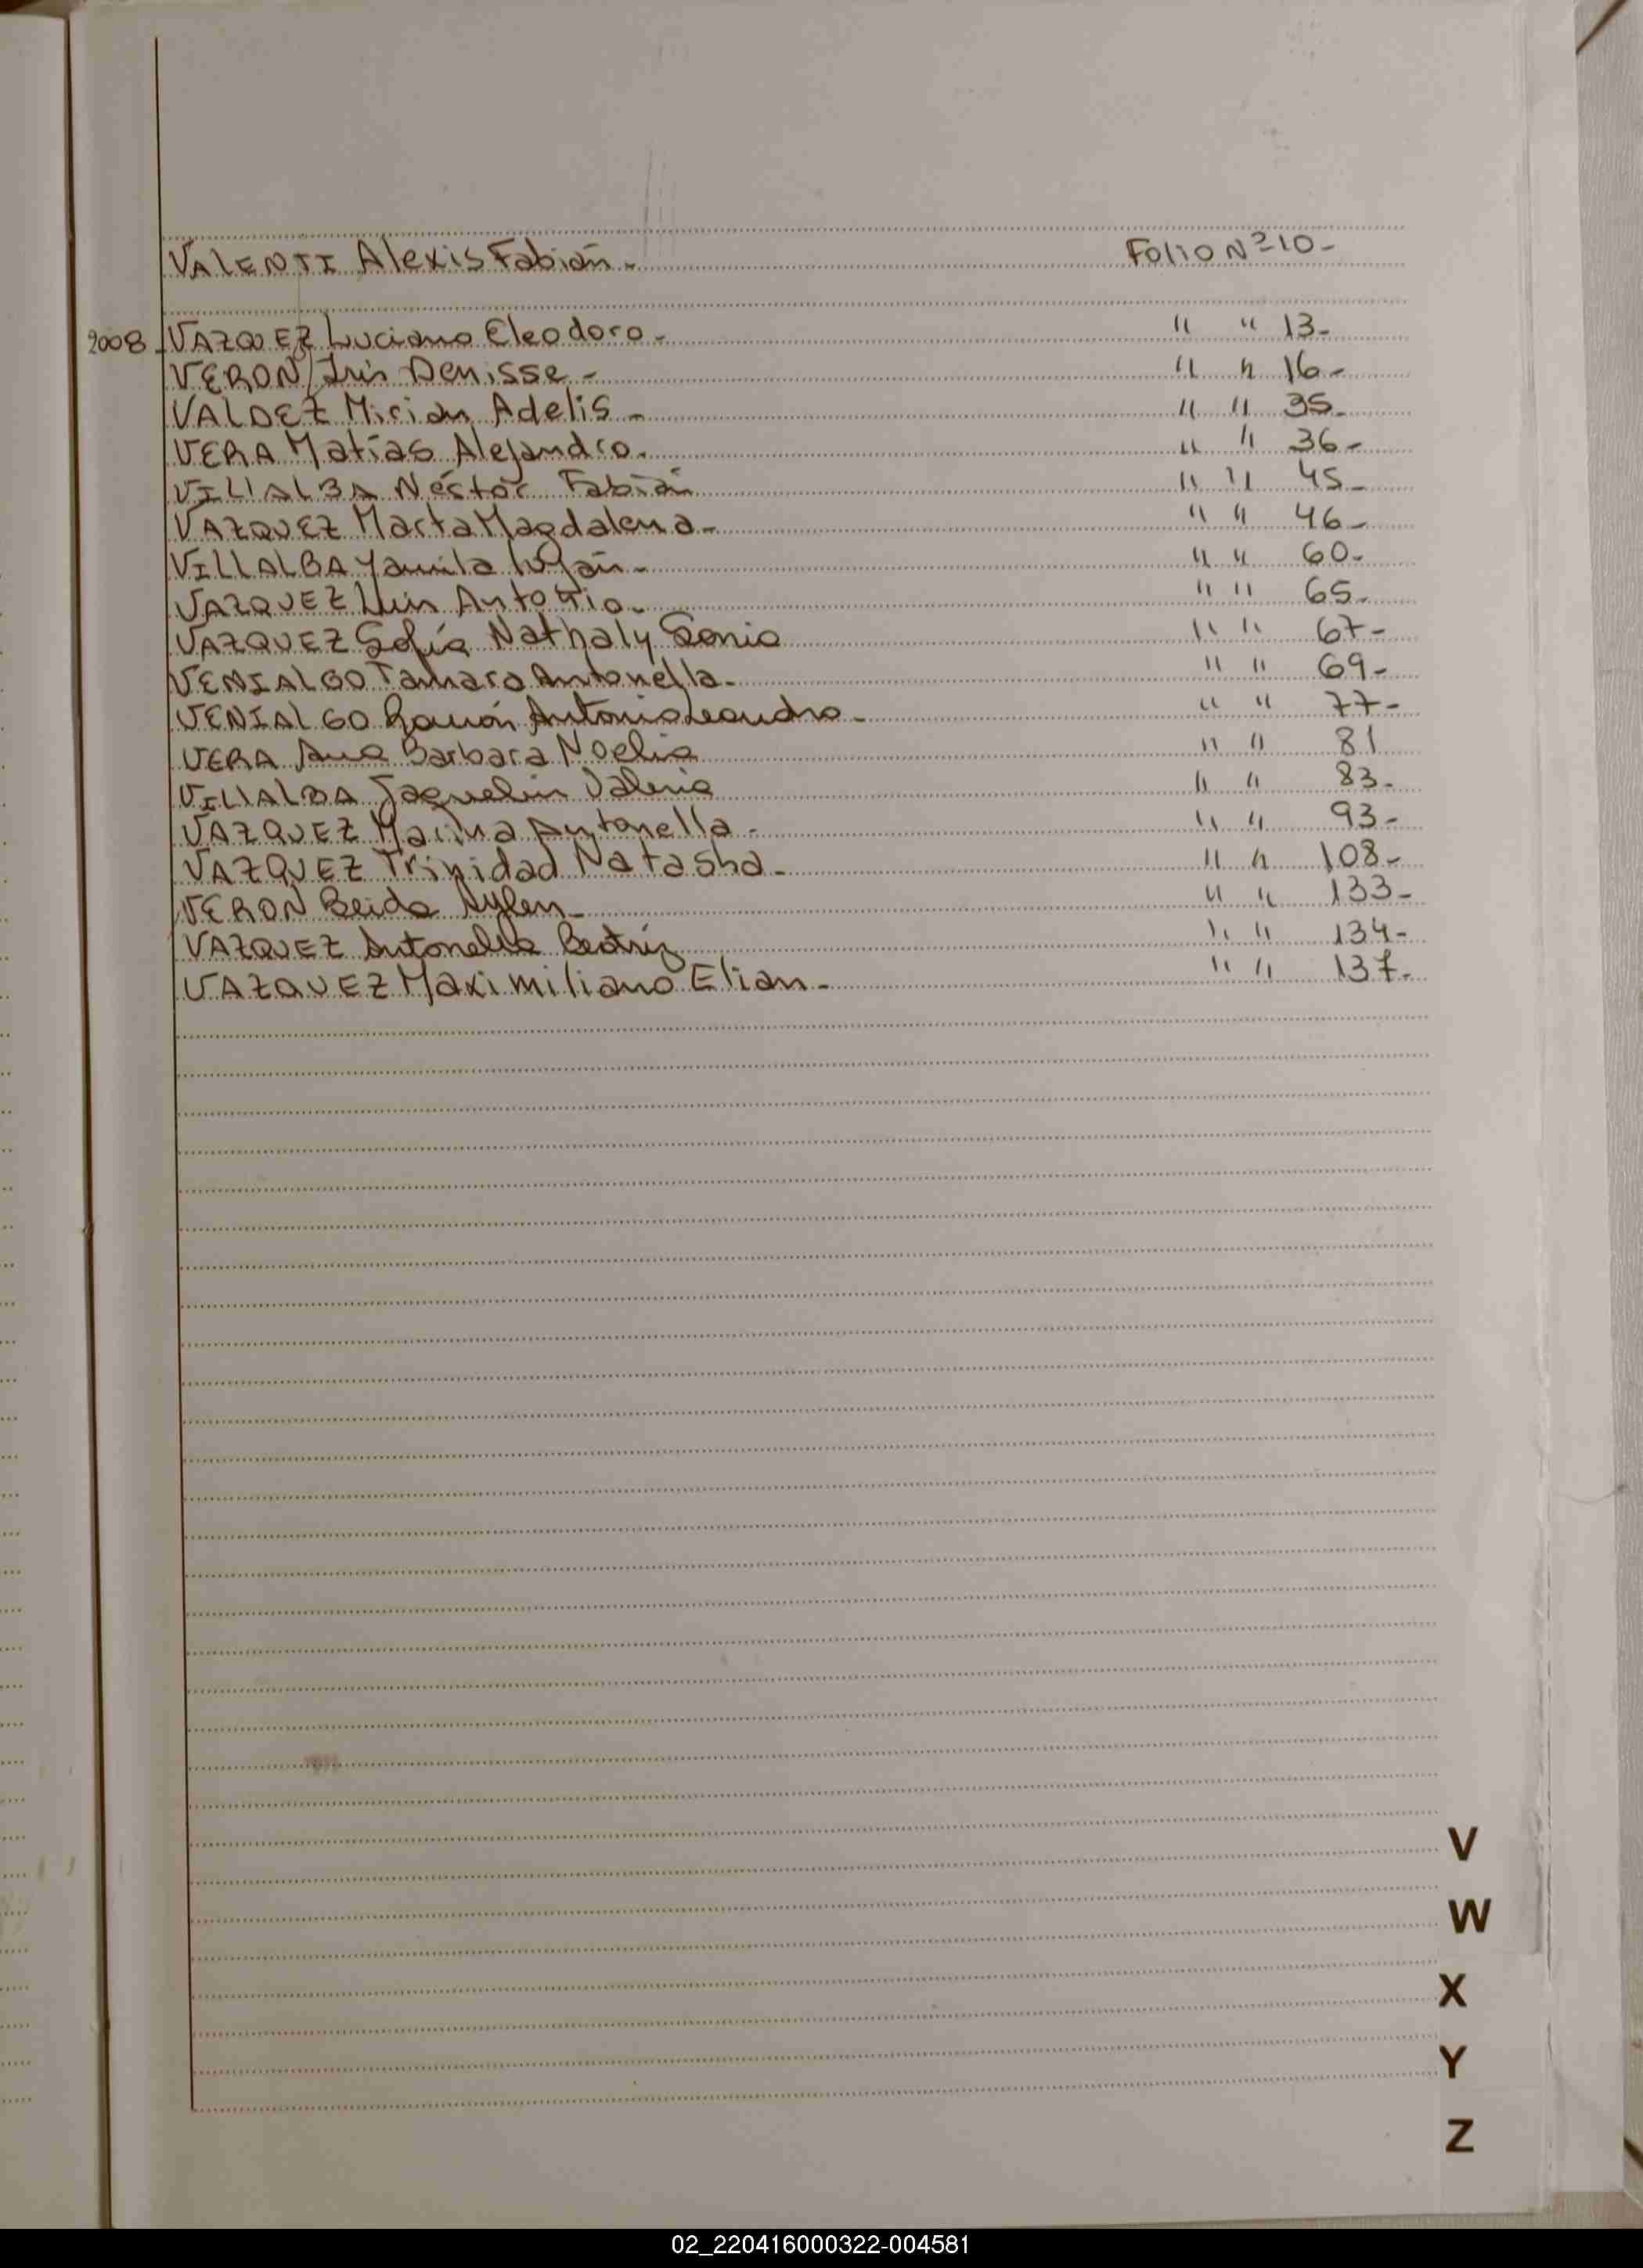 VALENTI Alexis Fabián - Folio Nº 10-
2008 - VAZQUEZ Luciano Eleodoro - " " 13-
VERON Iris Denisse - " " 16-
VALDEZ Mirian Adelis - " " 35-
VERA Matías Alejandro. " " 36-
VILLALBA Néstor Fabián " " 45-
VAZQUEZ Marta Magdalena - " " 46-
VILLALBA Yamila Luján - " " 60-
VAZQUEZ Luis Antonio. " " 65-
VAZQUEZ Sofía Nathaly Sonia " " 67-
VENIALGO Tamara Antonella - " " 69-
VENIALGO Ramón Antonio Leandro - " " 77-
VERA Ana Barbara Noelia " " 81
VILLALBA Jaquelin Valeria " " 83-
VAZQUEZ Marina Antonella - " " 93-
VAZQUEZ Trinidad Natasha - " " 108-
VERON Aylen - " " 133-
VAZQUEZ Antonella Beatriz " " 134-
VAZQUEZ Maximiliano Elian - " " 137-
V
W
X
Y
Z
02_220416000322-004581